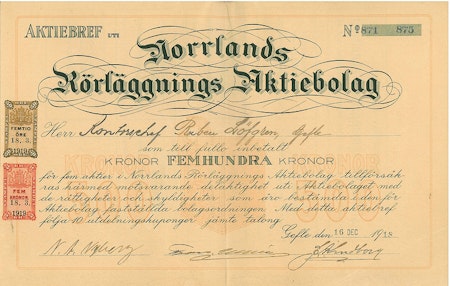 AKTIEBREF UTI
Nº 871 875
Norrlands
Rörläggnings Aktiebolag
Herr Kontorschef Löfgren, Gefle
som till fullo inbetalt
KRONOR FEMHUNDRA KRONOR
för fem aktier i Norrlands Rörläggnings Aktiebolag tillförsäk-
ras härmed motsvarande delaktighet uti Aktiebolaget med
de rättigheter och skyldigheter som äro bestämda i den för
Aktiebolag fastställda bolagsordningen. Med detta aktiebref
följa 10 utdelningskuponger jämte talong.
Gefle den 16 DEC 19
N. A. Nyberg
FEMTIO
ÖRE
18. 3.
1919
FEM
KRONOR
18. 3.
1919